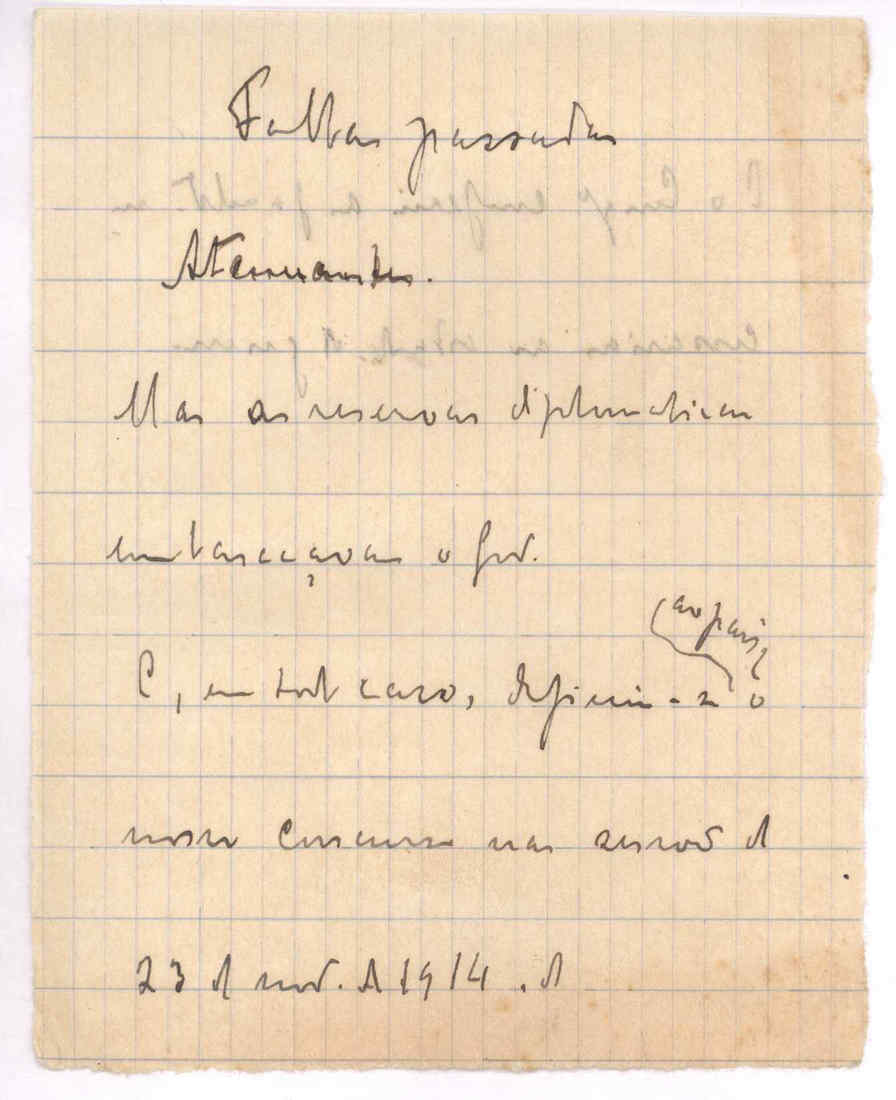 Faltas passadas
Atenuantes.
Mas as reservas diplomaticas
embaraçavam o Gov.
E, em todo caso, definiu-se o
ao paiz
nosso concurso nas sessões de
23 de nov. de 1914. de